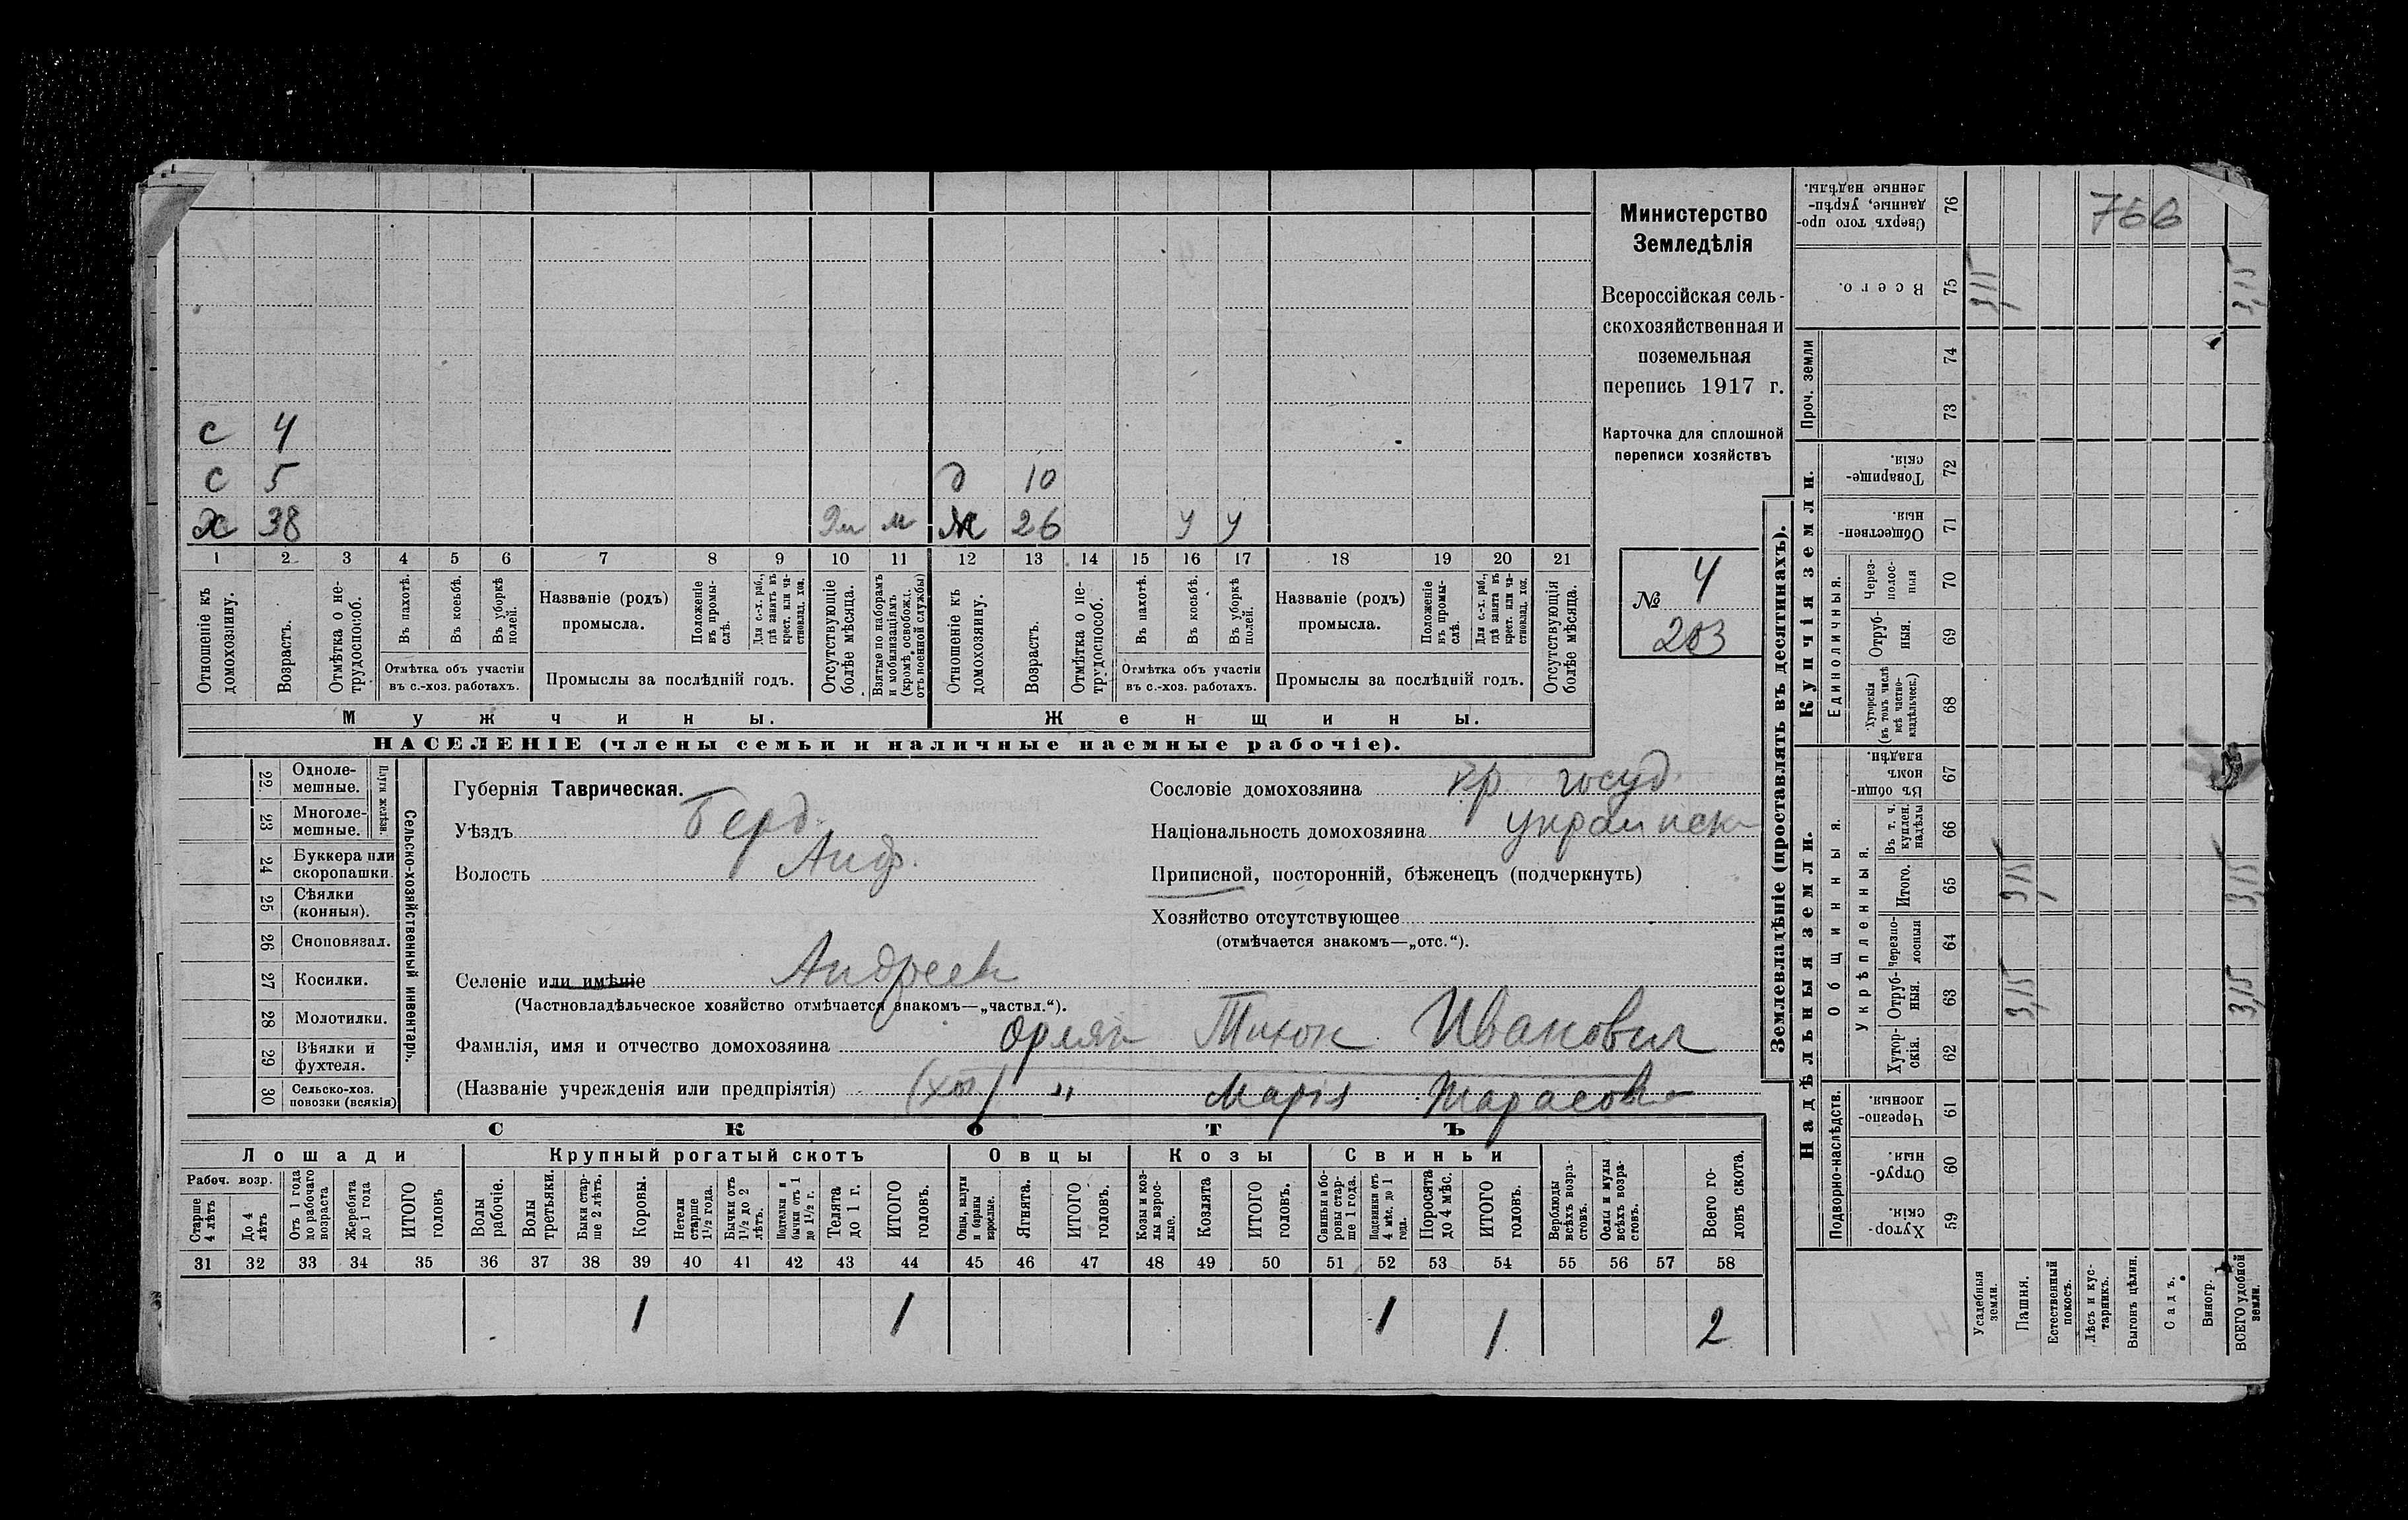 С 4
С 5 д 10
Х 38 м Ж 26 у у
1 2 3 4 5 6 7 8 9 10 11 12 13 14 15 16 17 18 19 20 21
Отношеніе къ домохозяину.
Возрастъ.
Отмѣтка о не-трудоспособ.
Въ пахотѣ.
Въ косьбѣ.
Въ уборкѣ полей.
Отмѣтка объ участіи
въ с.-хоз. работахъ.
Названіе (родъ)
промысла.
Положеніе въ промы-слѣ.
Для с.-х. раб., гдѣ занятъ въ крест. или ча-стновлад. хоз.
Промыслы за послѣдній годъ.
Отсутствующіе болѣе мѣсяца.
Взятые по наборамъ и мобилизаціямъ (кромѣ освобожд. отъ военной службы)
Отношеніе къ домохозяину.
Возрастъ.
Отмѣтка о не-трудоспособ.
Въ пахотѣ.
Въ косьбѣ.
Въ уборкѣ полей.
Отмѣтка объ участіи
въ с.-хоз. работахъ.
Названіе (родъ)
промысла.
Положеніе въ промы-слѣ.
Для с.-х. раб., гдѣ занята въ крест. или ча-стновлад. хоз.
Промыслы за послѣдній годъ.
Отсутствующія болѣе мѣсяца.
Мужчины. Женщины.
НАСЕЛЕНІЕ (члены семьи и наличные наемные рабочіе).
Министерство
Земледѣлія
Всероссійская сель-
скохозяйственная и
поземельная
перепись 1917 г.
Карточка для сплошной
переписи хозяйствъ
№ 4
203
22 Одноле-мешные.
23 Многоле-мешные.
Плуги желѣзн.
24 Буккера или скоропашки.
25 Сѣялки (конныя).
26 Сноповязал.
27 Косилки.
28 Молотилки.
29 Вѣялки и фухтеля.
30 Сельско-хоз. повозки (всякія)
Сельско-хозяйственный инвентарь.
Губернія Таврическая.
Уѣздъ Берд.
Волость Анд.
Селеніе или имѣніе Андреев
(Частновладѣльческое хозяйство отмѣчается знакомъ—„частвл.“).
Сословіе домохозяина кр. госуд.
Національность домохозяина украинск
Приписной, посторонній, бѣженецъ (подчеркнуть)
Хозяйство отсутствующее
(отмѣчается знакомъ—„отс.“).
Фамилія, имя и отчество домохозяина Орлян Тихон Иванович
(Названіе учрежденія или предпріятія) (хоз) " Марія Тарасовна
СКОТЪ
Лошади Крупный рогатый скотъ Овцы Козы Свиньи
Рабоч. возр.
Старше 4 лѣтъ
До 4 лѣтъ
Отъ 1 года до рабочаго возраста
Жеребята до 1 года
ИТОГО головъ
Волы рабочіе.
Волы третьяки.
Быки стар-ше 2 лѣтъ.
Коровы.
Нетели старше 1½ года.
Бычки отъ 1½ до 2 лѣтъ.
Подтелки и бычки отъ 1 до 1½ г.
Телята до 1 г.
ИТОГО головъ.
Овцы, валухи и бараны взрослые.
Ягнята.
ИТОГО головъ.
Козы и коз-лы взрос-лые.
Козлята
ИТОГО головъ.
Свиньи и бо-ровы стар-ше 1 года.
Подсвинки отъ 4 мѣс. до 1 года.
Поросята до 4 мѣс.
ИТОГО головъ.
Верблюды всѣхъ возра-стовъ.
Ослы и мулы всѣхъ возра-стовъ.
Всего го-ловъ скота.
31 32 33 34 35 36 37 38 39 40 41 42 43 44 45 46 47 48 49 50 51 52 53 54 55 56 57 58
1 1 1 1 2
Землевладѣніе (проставлять въ десятинахъ).
Надѣльныя земли. Купчія земли.
Подворно-наслѣдств.
Общинныя.
Укрѣпленныя.
Единоличныя.
Проч. земли
Сверхъ того про-данные, укрѣп-ленные надѣлы. 76
Всего. 75
74
73
Товарище-скія. 72
Обществен-ныя. 71
Через-полос-ныя 70
Отруб-ныя. 69
Хуторскія (въ томъ числѣ всѣ частно-владѣльческ.) 68
Въ общи-номъ владѣн. 67
Въ т. ч. куплен. надѣлы 66
Итого. 65
Черезпо-лосныя 64
Отруб-ныя. 63
Хутор-скія. 62
Черезпо-лосныя. 61
Отруб-ныя. 60
Хутор-скія. 59
766
3,15 3,15
3,15 3,15
3,15 3,15
Усадебныя земли.
Пашня.
Естественный покосъ.
Лѣсъ и кус-тарникъ.
Выгонъ цѣлин.
Садъ.
Виногр.
ВСЕГО удобной земли.